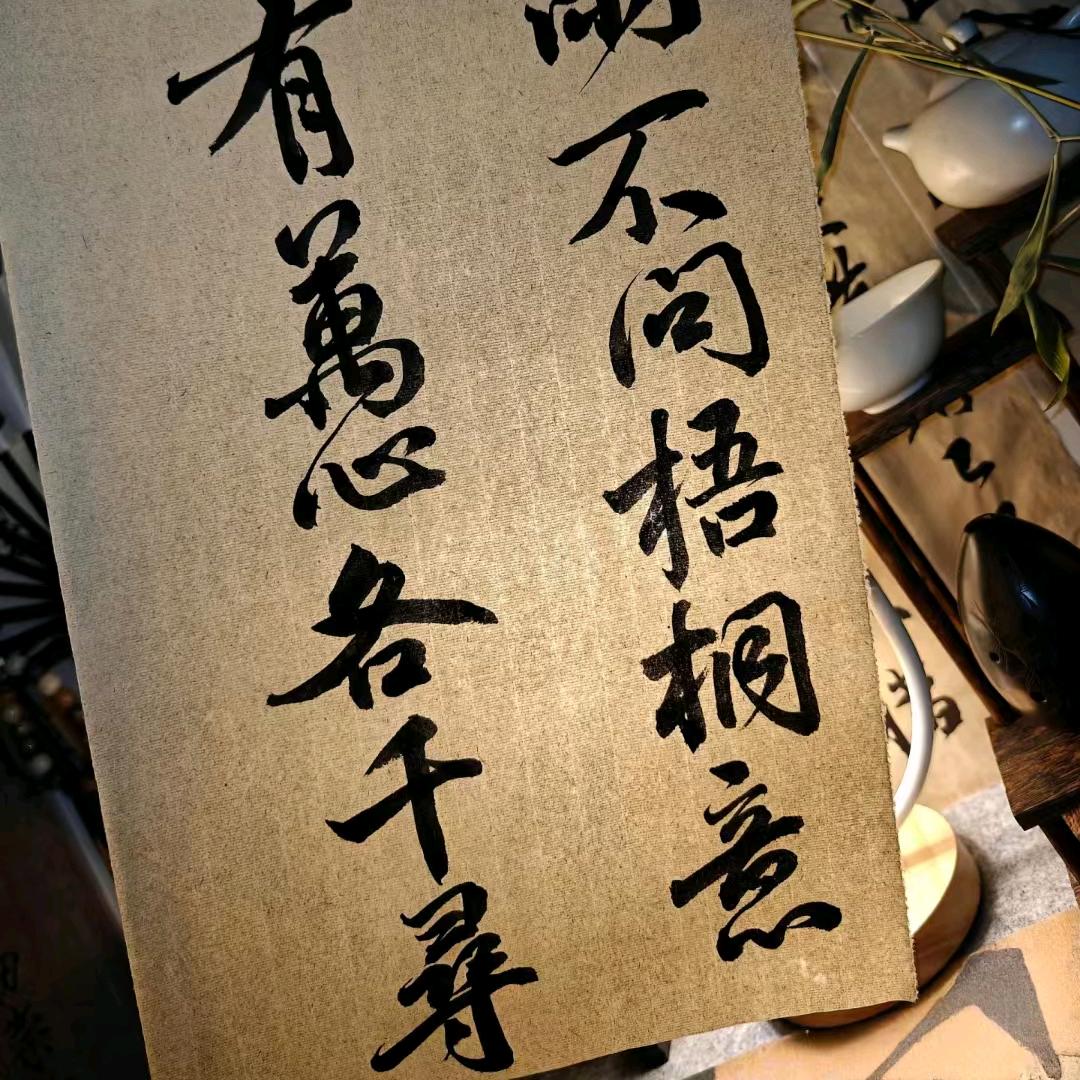 雨不問梧桐意
有萬心各千尋